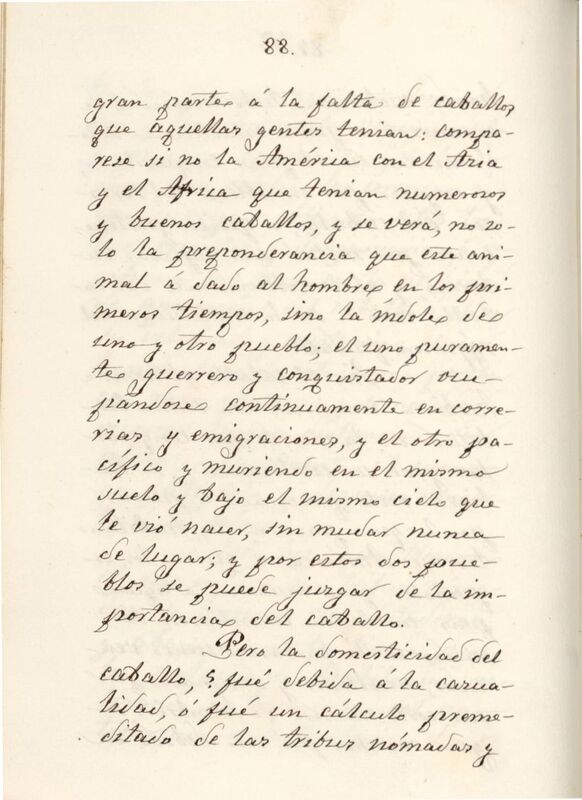 88.
gran parte á la falta de caballos
que aquellas gentes tenian: compa-
rese si no la América con el Asia
y el Africa que tenian numerosos
y buenos caballos, y se verá, no so-
lo la preponderancia que este ani-
mal á dado al hombre en los pri-
meros tiempos, sino la índole de
uno y otro pueblo; el uno puramen-
te guerrero y conquistador ocu-
pándose contínuamente en corre-
rias y emigraciones, y el otro pa-
cífico y muriendo en el mismo
suelo y bajo el mismo cielo que
le vió nacer, sin mudar nunca
de lugar; y por estos dos pue-
blos se puede juzgar de la im-
portancia del caballo.
Pero la domesticidad del
caballo, ? fué debida á la casua-
lidad, ó fué un cálculo preme-
ditado de las tribus nómadas y